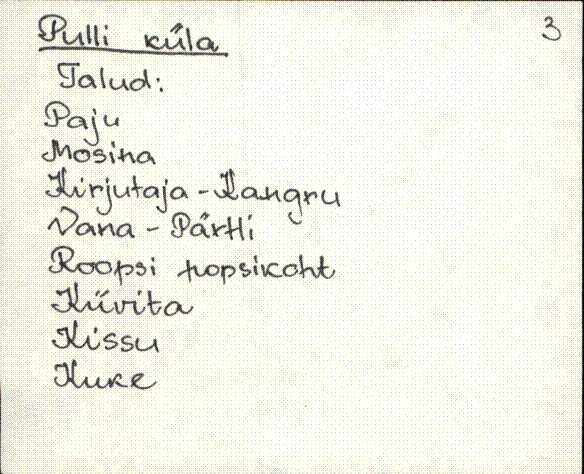 Pulli küla 3
Talud:
Paju
Mosina
Kirjutaja-Kangru
Vana - Pärtli
Roopsi popsikoht
Küvita
Kissu
Kuke